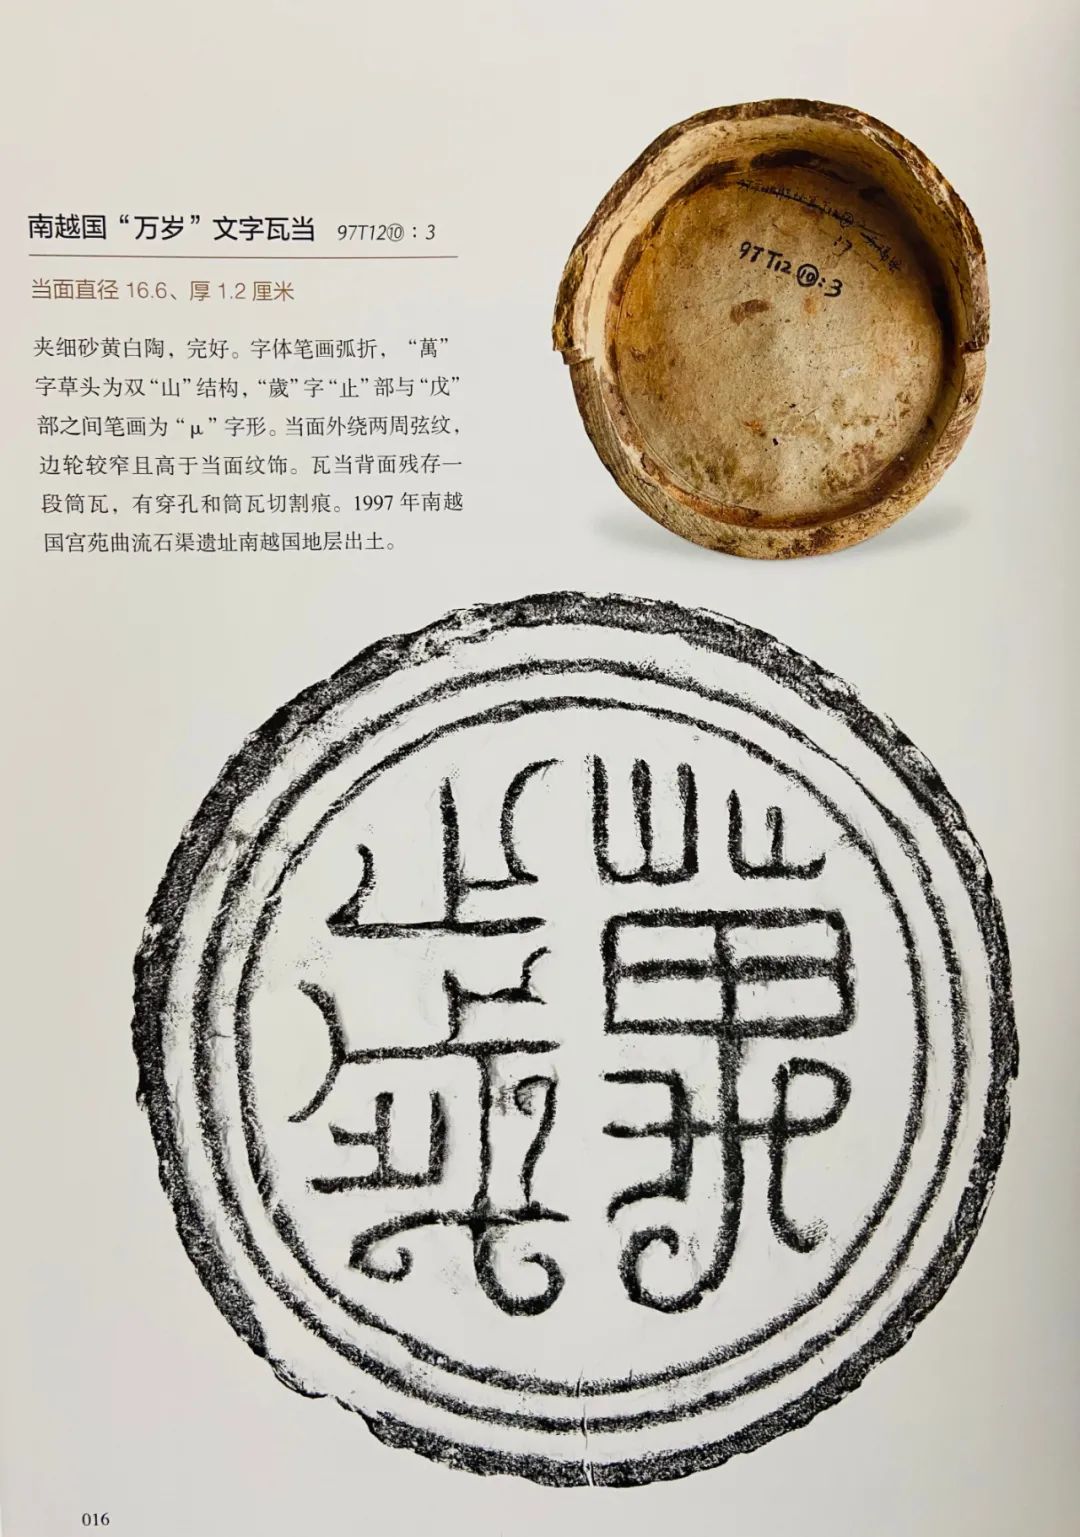 南越国“万岁”文字瓦当 97T12⑩：3
当面直径 16.6、厚 1.2 厘米
夹细砂黄白陶，完好。字体笔画弧折，“萬”
字草头为双“山”结构，“歲”字“止”部与“戊”
部之间笔画为“μ”字形。当面外绕两周弦纹，
边轮较窄且高于当面纹饰。瓦当背面残存一
段筒瓦，有穿孔和筒瓦切割痕。1997 年南越
国宫苑曲流石渠遗址南越国地层出土。
97T12⑩:3
萬歲
016